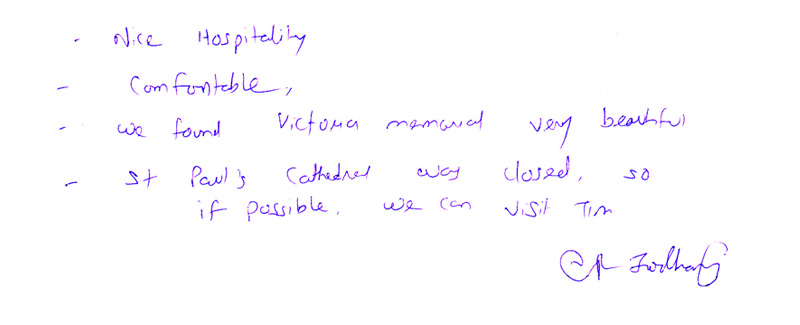 - Nice Hospitality
- Comfortable,
- we found Victoria memorial very beautiful
- St Paul's Cathedral was closed, so
if possible, we can visit